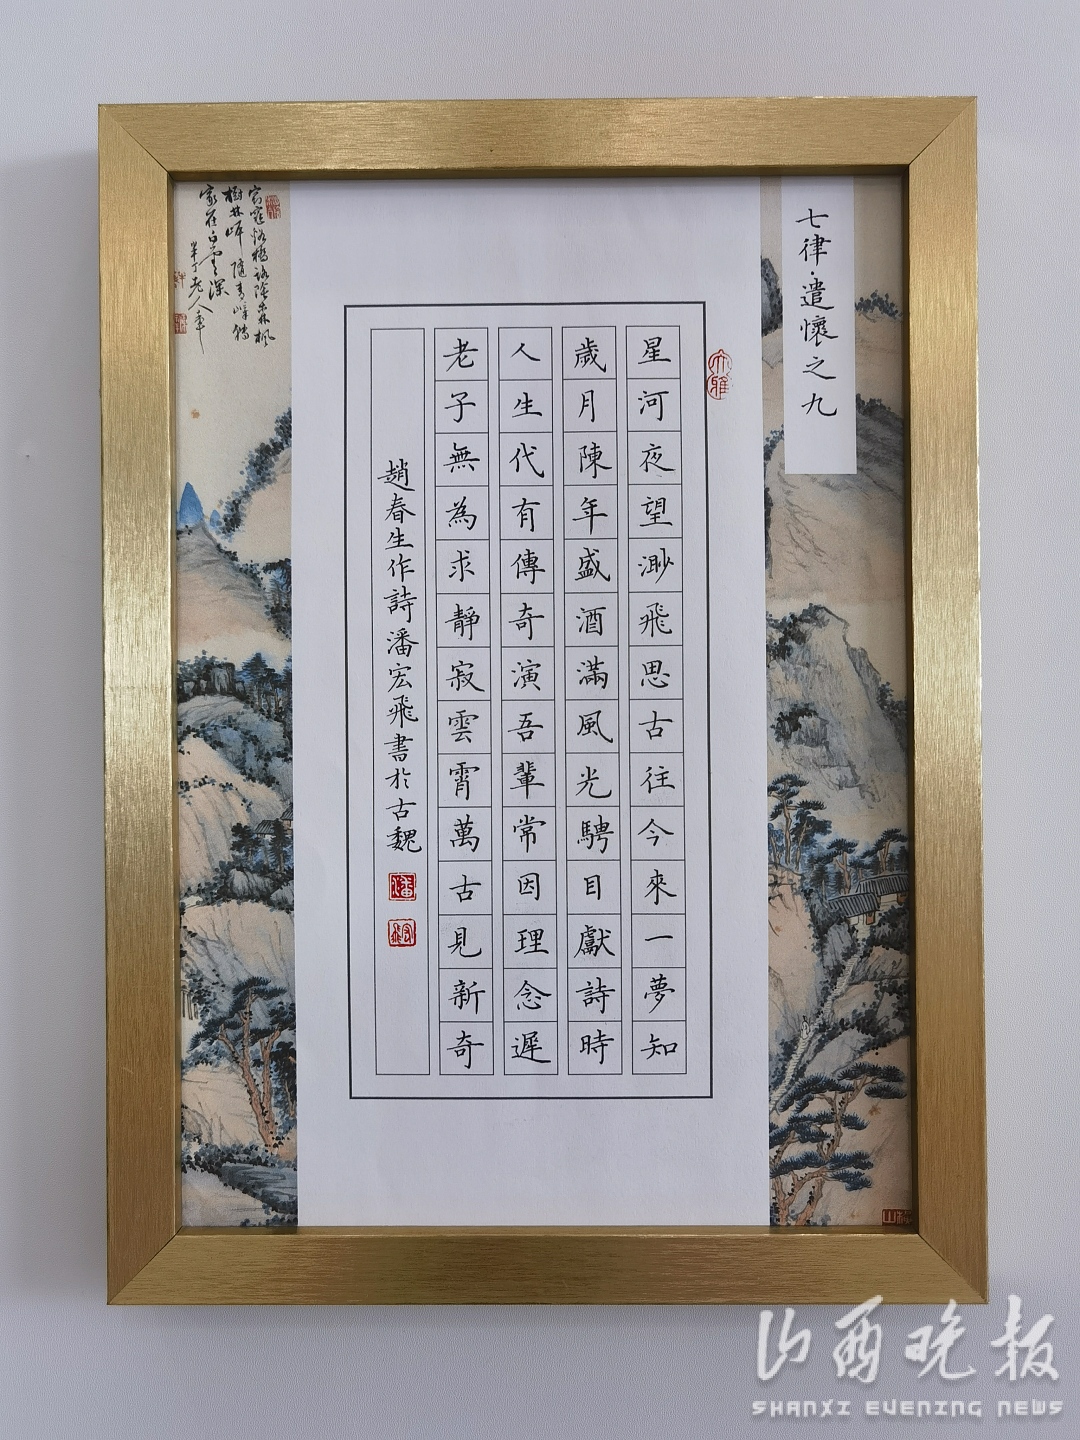 七律·遣懷之九
大雅
星河夜望渺飛思古往今來一夢知
歲月陳年盛酒滿風光騁目獻詩時
人生代有傳奇演吾輩常因理念遲
老子無為求靜寂雲霄萬古見新奇
趙春生作詩潘宏飛書於古魏
家在白雲深
山西晚報
SHANXI EVENING NEWS